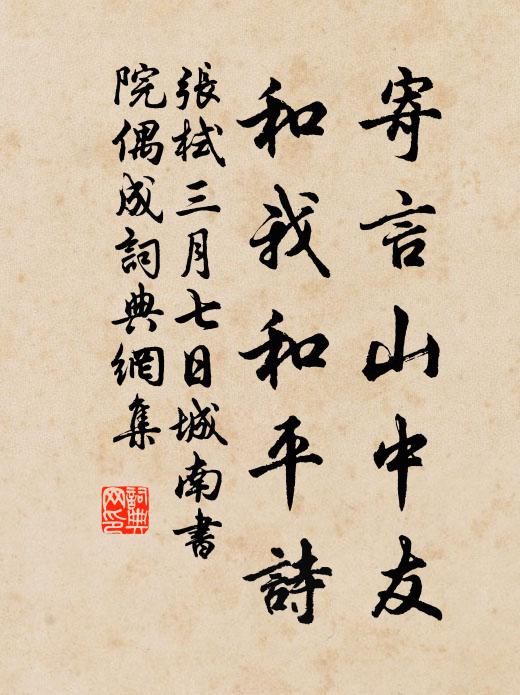 寄言山中友
和我和平詩
張栻三月七日城南書
院偶成詞典網集
詞典
网印